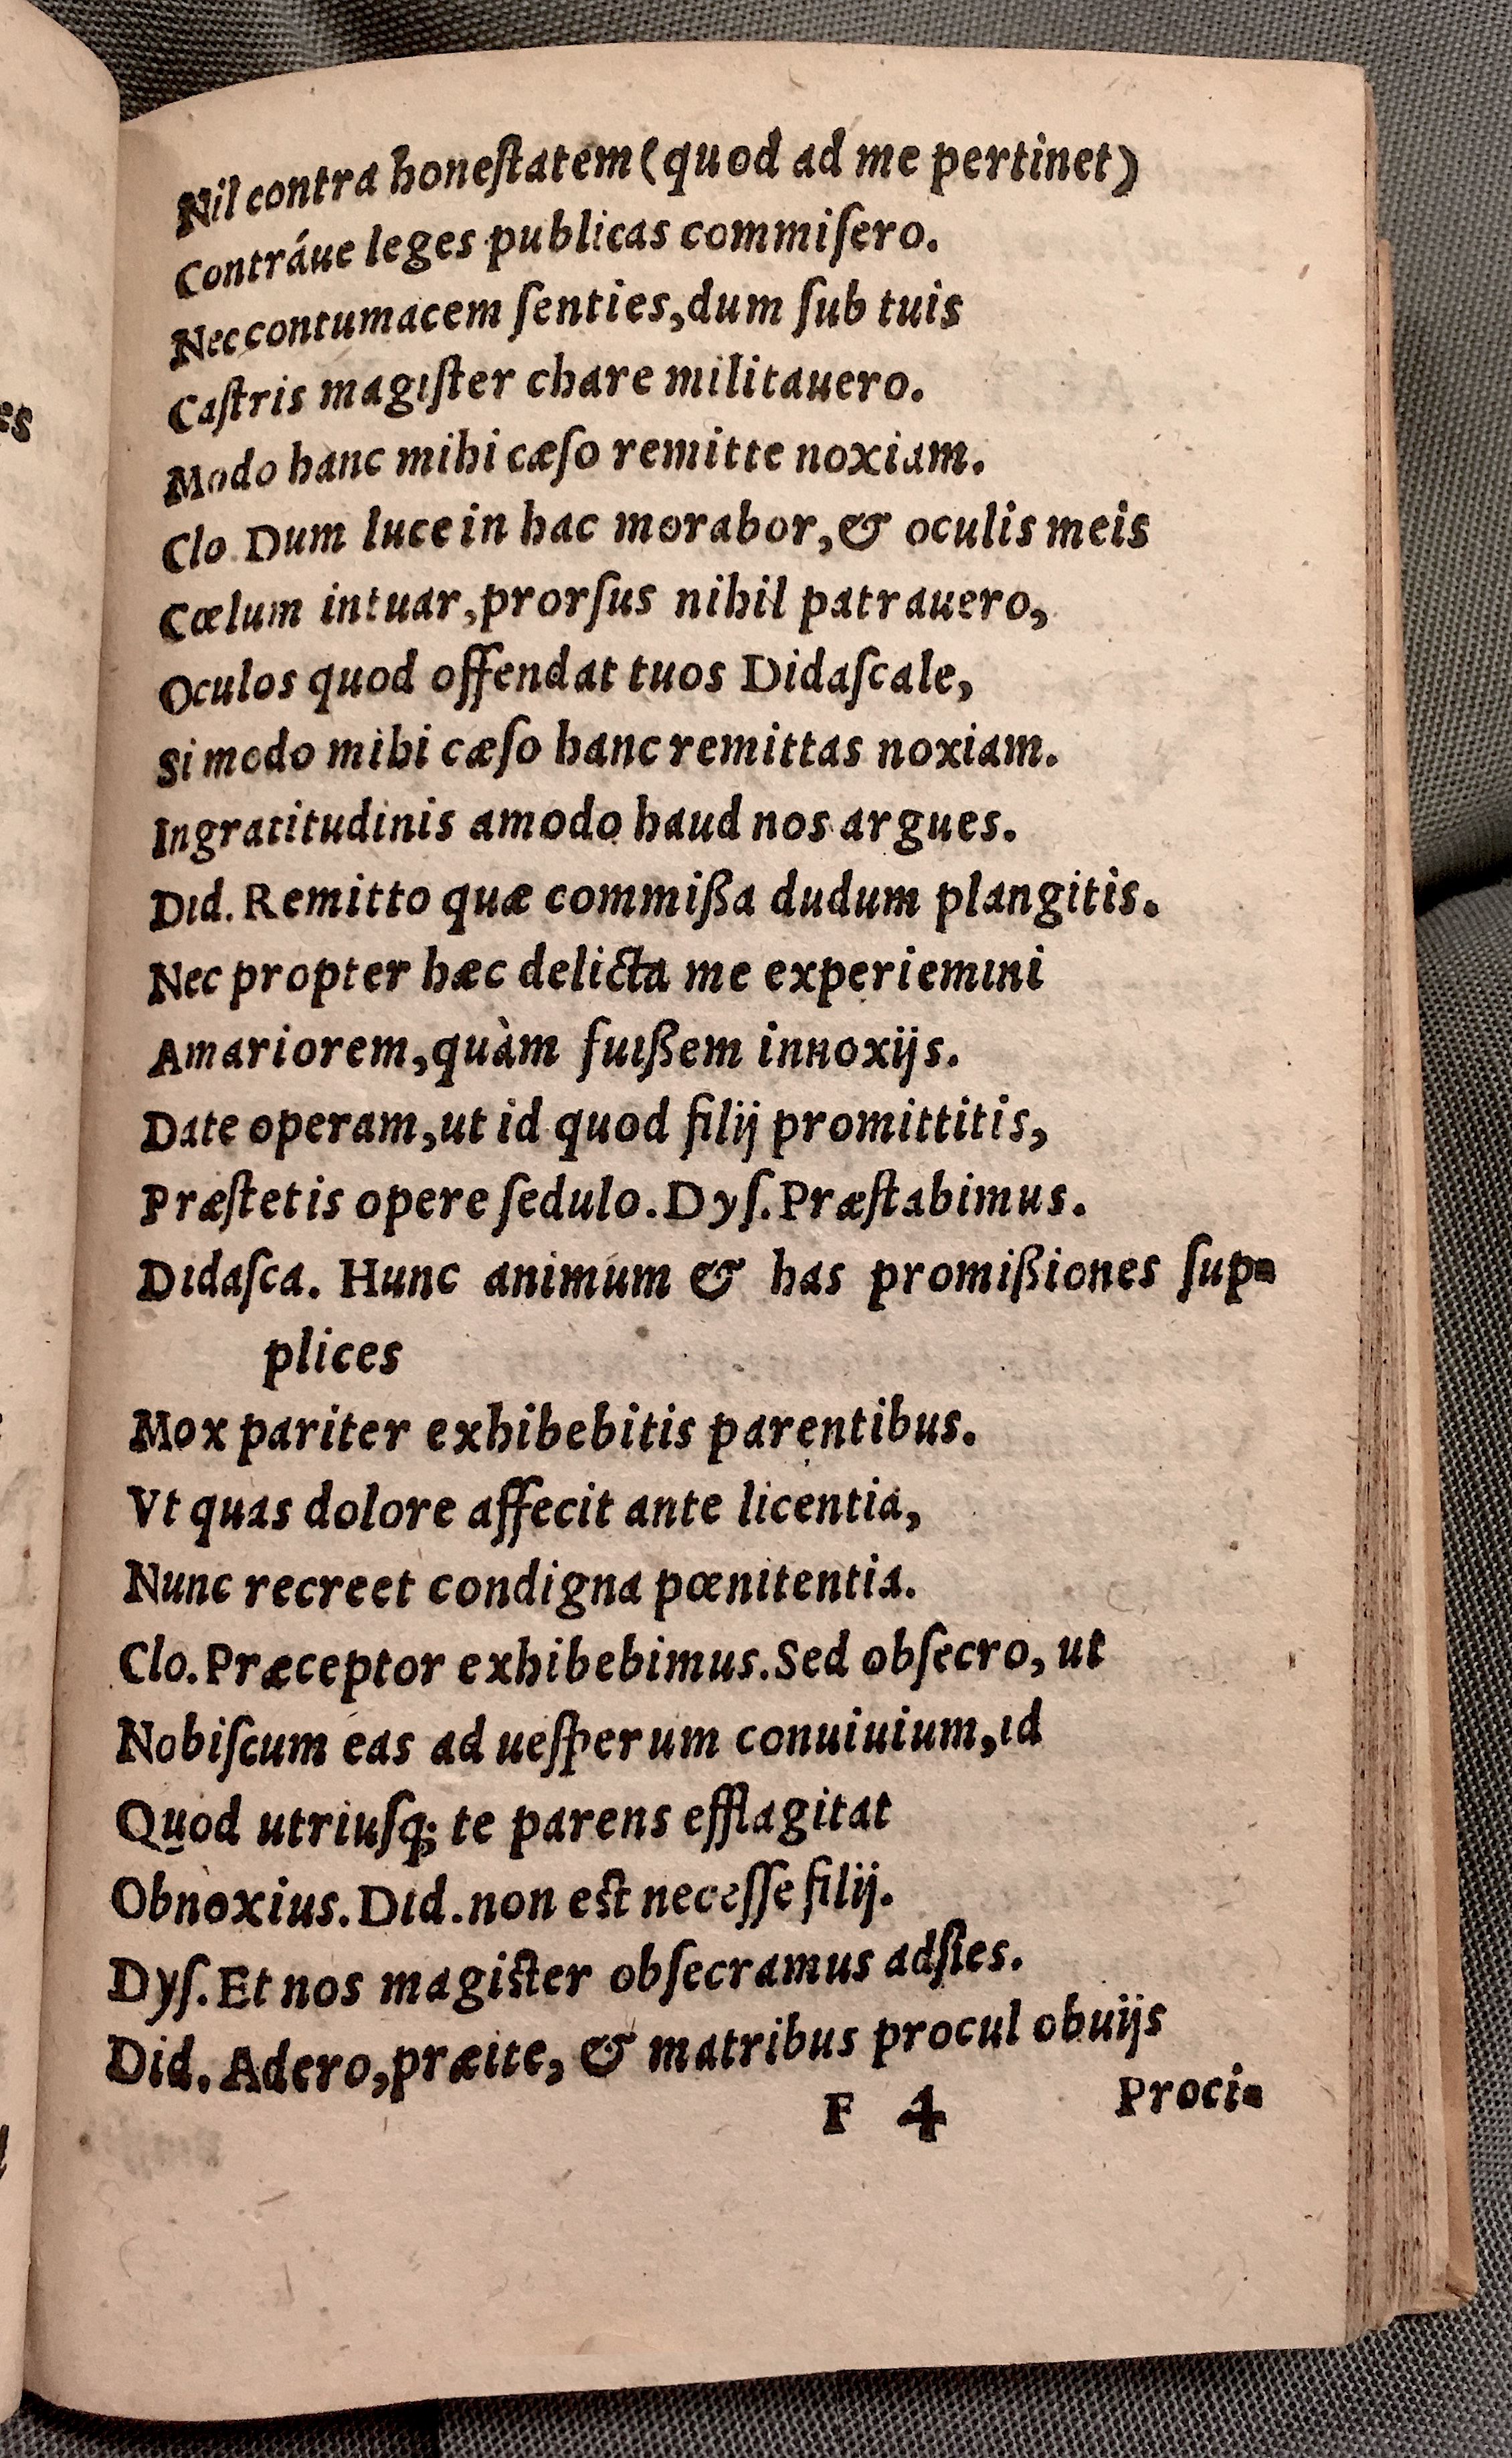 Nil contra honeſtatem (quod ad me pertinet)
Contráue leges publicas commiſero.
Nec contumacem ſenties, dum ſub tuis
Caſtris magiſter chare militauero.
Modo hanc mihi cæſo remitte noxiam.
Clo Dum luce in hac morabor, & oculis meis
Cœlum intuar, prorſus nihil patrauero,
Oculos quod offendat tuos Didaſcale,
Si modo mihi cæſo hanc remittas noxiam.
Ingratitudinis amodo haud nos argues.
Did. Remitto quæ commißa dudum plangitis.
Nec propter hæc delicta me experiemini
Amariorem, quàm fuißem innoxijs.
Date operam, ut id quod filij promittitis,
Præſtetis opere ſedulo. Dyſ. Præſtabimus.
Didaſca. Hunc animum & has promißiones ſup=
plices
Mox pariter exhibebitis parentibus.
Vt quas dolore affecit ante licentia,
Nunc recreet condigna pœnitentia.
Clo. Præceptor exhibebimus. Sed obſecro, ut
Nobiſcum eas ad ueſperum conuiuium, id
Quod utriuſq; te parens efflagitat
Obnoxius. Did. non est neceſſe filij.
Dyſ. Et nos magister obſecramus adſies.
Did. Adero, præite, & matribus procul obuijs
F 4 Proci=
es